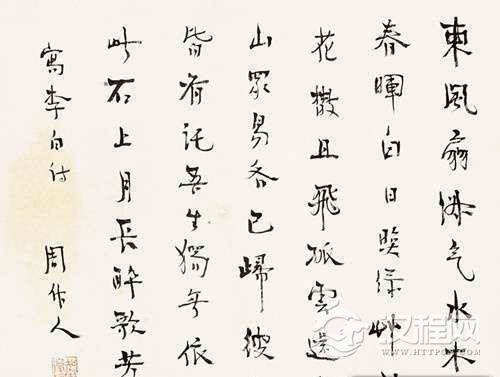 東風扇淑气水木
春暉白日暎绿艸
花散且飛孤雲還
山眾鳥各已歸彼
皆有託吾生獨無依
此石上月長醉歌芳
寫李白诗
周作人
汉程网